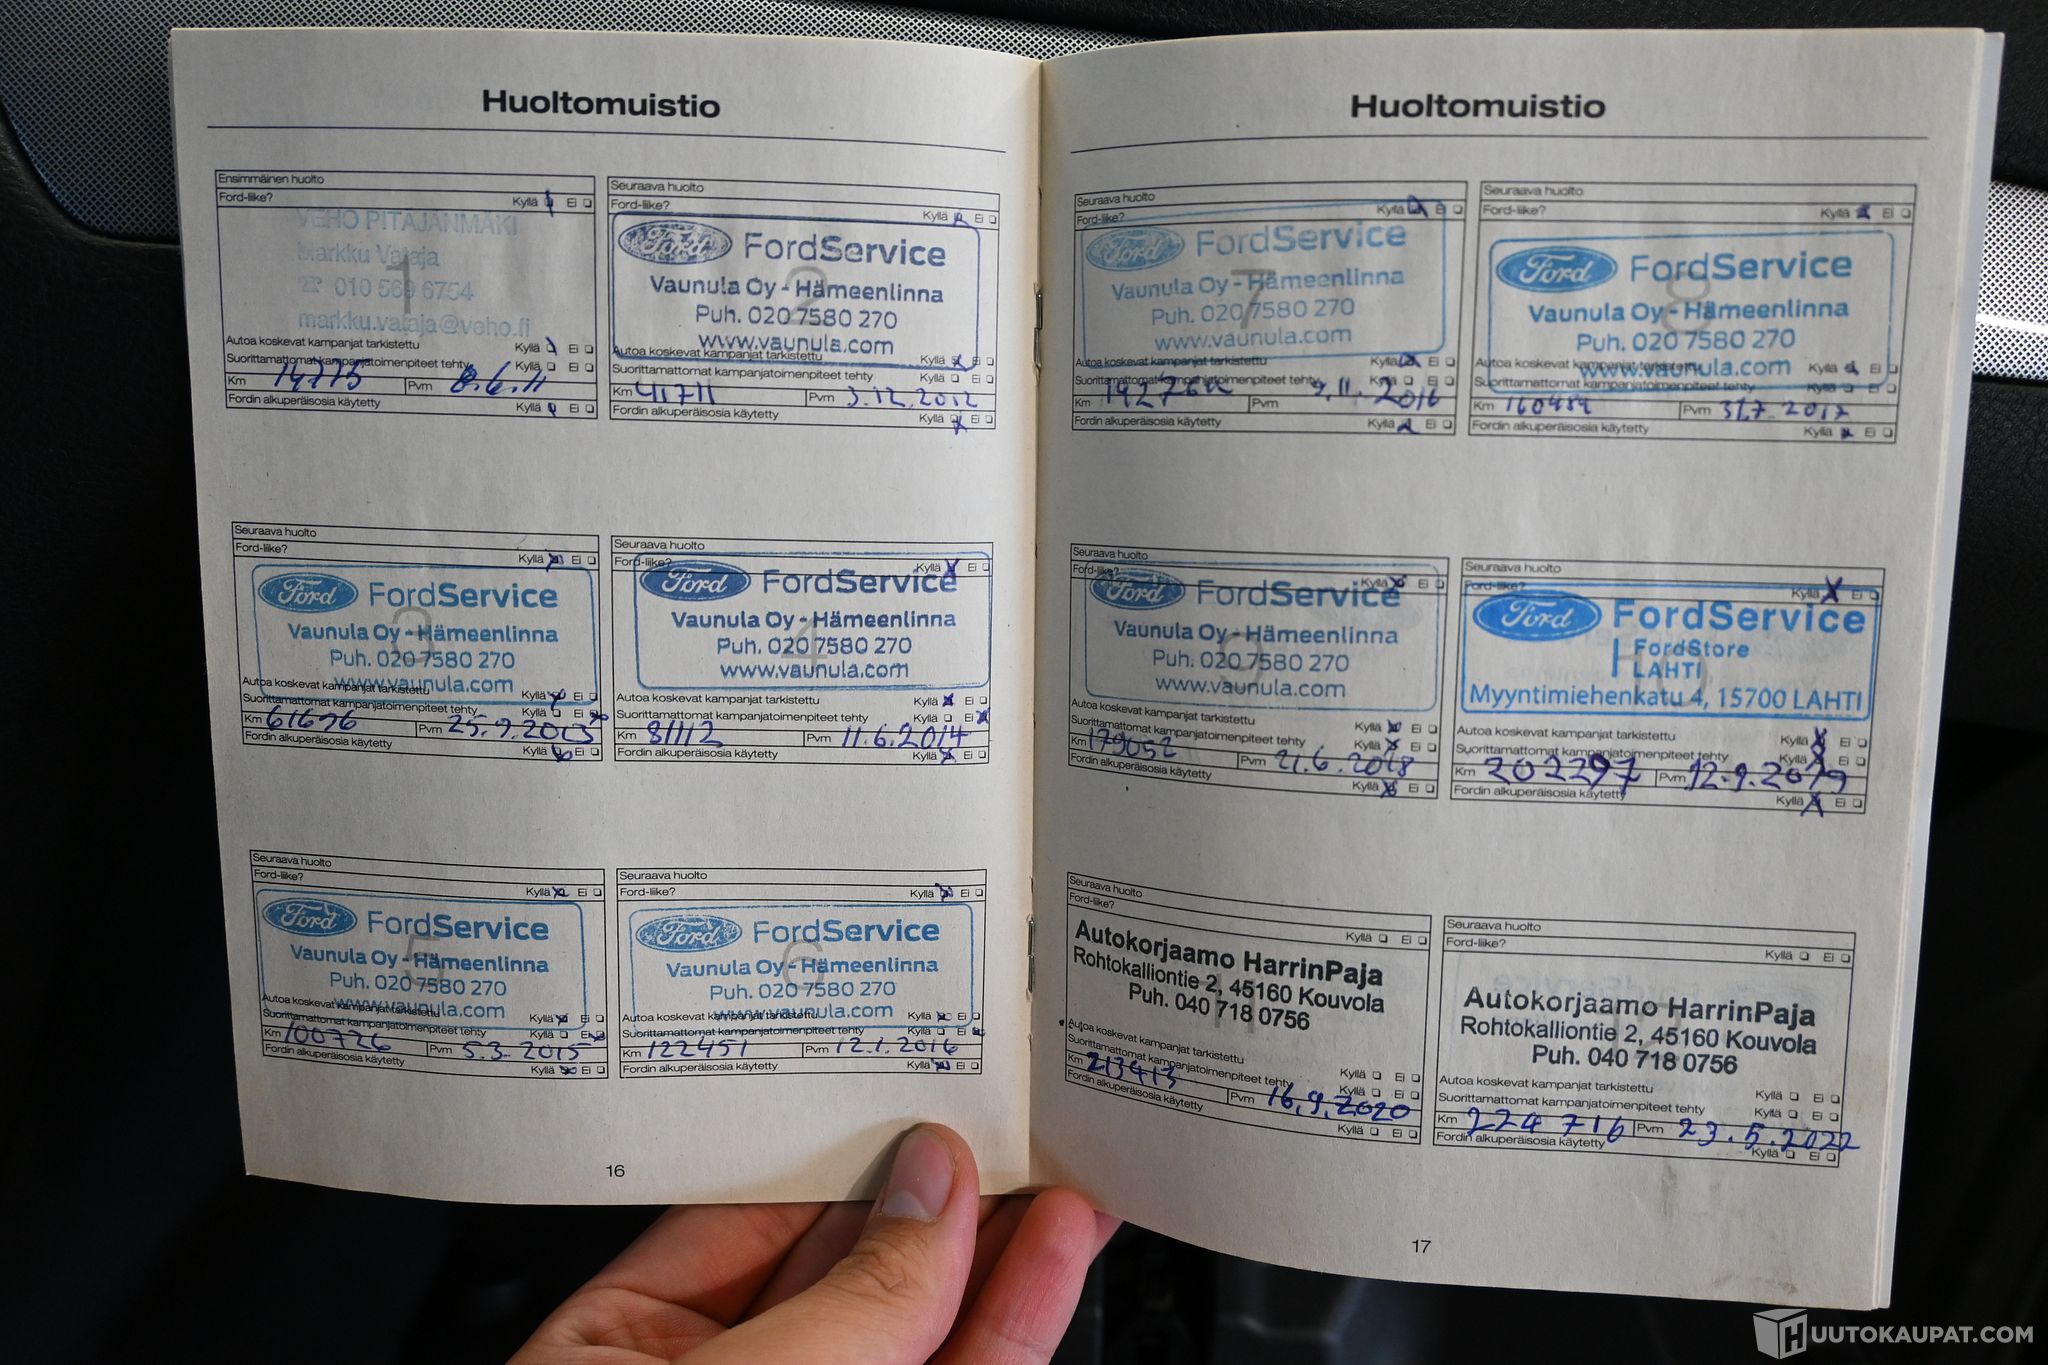 Huoltomuistio
Ensimmäinen huolto
Ford-liike? Kyllä Ei
VEHO PITÄJÄNMÄKI
Markku Vataja
1
☏ 010 569 6754
markku.vataja@veho.fi
Autoa koskevat kampanjat tarkistettu Kyllä Ei
Suorittamattomat kampanjatoimenpiteet tehty Kyllä Ei
Km 14775 Pvm 8.6.11
Fordin alkuperäisosia käytetty Kyllä Ei
Seuraava huolto
Ford-liike? Kyllä Ei
Ford FordService
2
Vaunula Oy - Hämeenlinna
Puh. 020 7580 270
www.vaunula.com
Autoa koskevat kampanjat tarkistettu Kyllä Ei
Suorittamattomat kampanjatoimenpiteet tehty Kyllä Ei
Km 41711 Pvm 3.12.2012
Fordin alkuperäisosia käytetty Kyllä Ei
Seuraava huolto
Ford-liike? Kyllä Ei
Ford FordService
3
Vaunula Oy - Hämeenlinna
Puh. 020 7580 270
www.vaunula.com
Autoa koskevat kampanjat tarkistettu Kyllä Ei
Suorittamattomat kampanjatoimenpiteet tehty Kyllä Ei
Km 61696 Pvm 25.9.2013
Fordin alkuperäisosia käytetty Kyllä Ei
Seuraava huolto
Ford-liike? Kyllä Ei
Ford FordService
4
Vaunula Oy - Hämeenlinna
Puh. 020 7580 270
www.vaunula.com
Autoa koskevat kampanjat tarkistettu Kyllä Ei
Suorittamattomat kampanjatoimenpiteet tehty Kyllä Ei
Km 81112 Pvm 11.6.2014
Fordin alkuperäisosia käytetty Kyllä Ei
Seuraava huolto
Ford-liike? Kyllä Ei
Ford FordService
5
Vaunula Oy - Hämeenlinna
Puh. 020 7580 270
www.vaunula.com
Autoa koskevat kampanjat tarkistettu Kyllä Ei
Suorittamattomat kampanjatoimenpiteet tehty Kyllä Ei
Km 100726 Pvm 5.3.2015
Fordin alkuperäisosia käytetty Kyllä Ei
Seuraava huolto
Ford-liike? Kyllä Ei
Ford FordService
6
Vaunula Oy - Hämeenlinna
Puh. 020 7580 270
www.vaunula.com
Autoa koskevat kampanjat tarkistettu Kyllä Ei
Suorittamattomat kampanjatoimenpiteet tehty Kyllä Ei
Km 122451 Pvm 12.1.2016
Fordin alkuperäisosia käytetty Kyllä Ei
16
Huoltomuistio
Seuraava huolto
Ford-liike? Kyllä Ei
Ford FordService
7
Vaunula Oy - Hämeenlinna
Puh. 020 7580 270
www.vaunula.com
Autoa koskevat kampanjat tarkistettu Kyllä Ei
Suorittamattomat kampanjatoimenpiteet tehty Kyllä Ei
Km Pvm 9.11.2016
Fordin alkuperäisosia käytetty Kyllä Ei
Seuraava huolto
Ford-liike? Kyllä Ei
Ford FordService
8
Vaunula Oy - Hämeenlinna
Puh. 020 7580 270
www.vaunula.com
Autoa koskevat kampanjat tarkistettu Kyllä Ei
Suorittamattomat kampanjatoimenpiteet tehty Kyllä Ei
Km 160484 Pvm 31.7.2017
Fordin alkuperäisosia käytetty Kyllä Ei
Seuraava huolto
Ford-liike? Kyllä Ei
Ford FordService
9
Vaunula Oy - Hämeenlinna
Puh. 020 7580 270
www.vaunula.com
Autoa koskevat kampanjat tarkistettu Kyllä Ei
Suorittamattomat kampanjatoimenpiteet tehty Kyllä Ei
Km 179052 Pvm 21.6.2018
Fordin alkuperäisosia käytetty Kyllä Ei
Seuraava huolto
Ford-liike? Kyllä Ei
Ford FordService
FordStore
LAHTI
Myyntimiehenkatu 4, 15700 LAHTI
Autoa koskevat kampanjat tarkistettu Kyllä Ei
Suorittamattomat kampanjatoimenpiteet tehty Kyllä Ei
Km 202297 Pvm 12.9.2019
Fordin alkuperäisosia käytetty Kyllä Ei
Seuraava huolto
Ford-liike? Kyllä Ei
Autokorjaamo HarrinPaja
Rohtokalliontie 2, 45160 Kouvola
Puh. 040 718 0756
Autoa koskevat kampanjat tarkistettu Kyllä Ei
Suorittamattomat kampanjatoimenpiteet tehty Kyllä Ei
Km 213413 Pvm 16.9.2020
Fordin alkuperäisosia käytetty Kyllä Ei
Seuraava huolto
Ford-liike? Kyllä Ei
Autokorjaamo HarrinPaja
Rohtokalliontie 2, 45160 Kouvola
Puh. 040 718 0756
Autoa koskevat kampanjat tarkistettu Kyllä Ei
Suorittamattomat kampanjatoimenpiteet tehty Kyllä Ei
Km 224 716 Pvm 23.5.2022
Fordin alkuperäisosia käytetty Kyllä Ei
17
HUUTOKAUPAT.COM